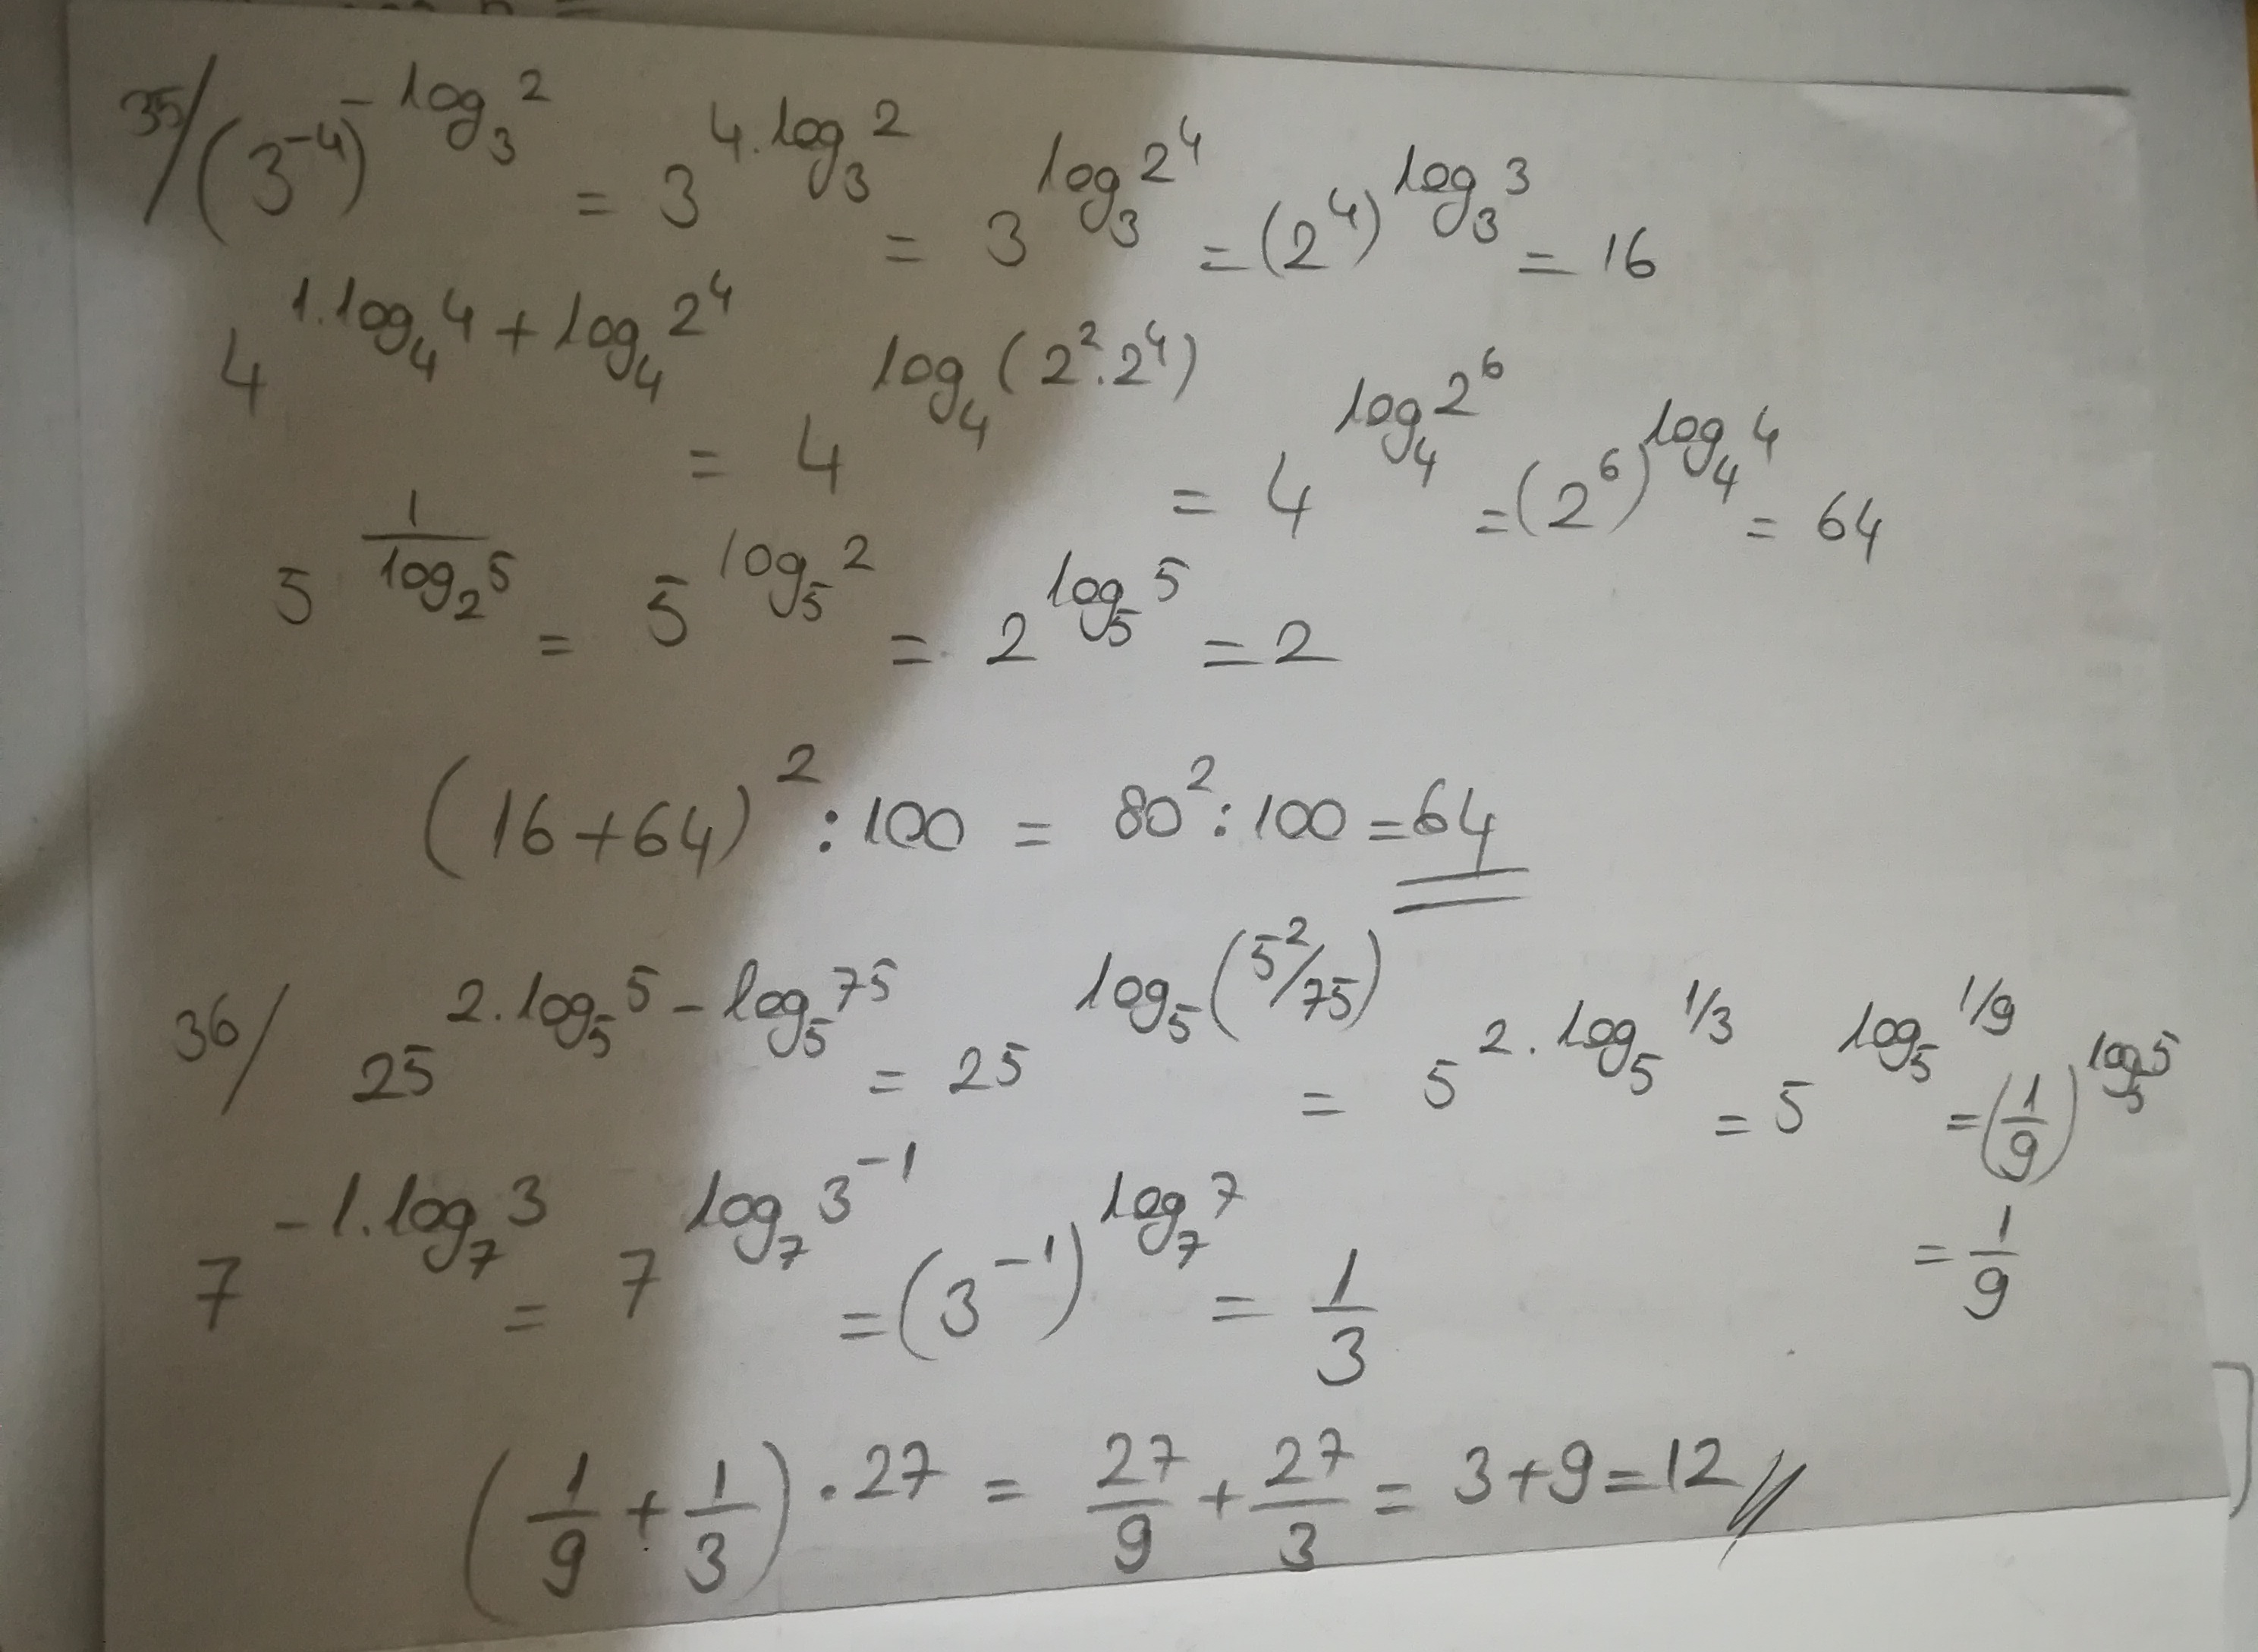 35/ (3^-4)^-log_3 2 = 3^4.log_3 2 = 3^log_3 2^4 = (2^4)^log_3 3 = 16
4^1.log_4 4 + log_4 2^4 = 4^log_4 (2^2.2^4) = 4^log_4 2^6 = (2^6)^log_4 4 = 64
5^1/log_2 5 = 5^log_5 2 = 2^log_5 5 = 2
(16+64)^2 : 100 = 80^2 : 100 = 64
36/ 25^2.log_5 5 - log_5 75 = 25^log_5 (5^2/75) = 5^2.log_5 1/3 = 5^log_5 1/9 = (1/9)^log_5 5
= 1/9
7^-1.log_7 3 = 7^log_7 3^-1 = (3^-1)^log_7 7 = 1/3
(1/9 + 1/3) . 27 = 27/9 + 27/3 = 3+9 = 12 //